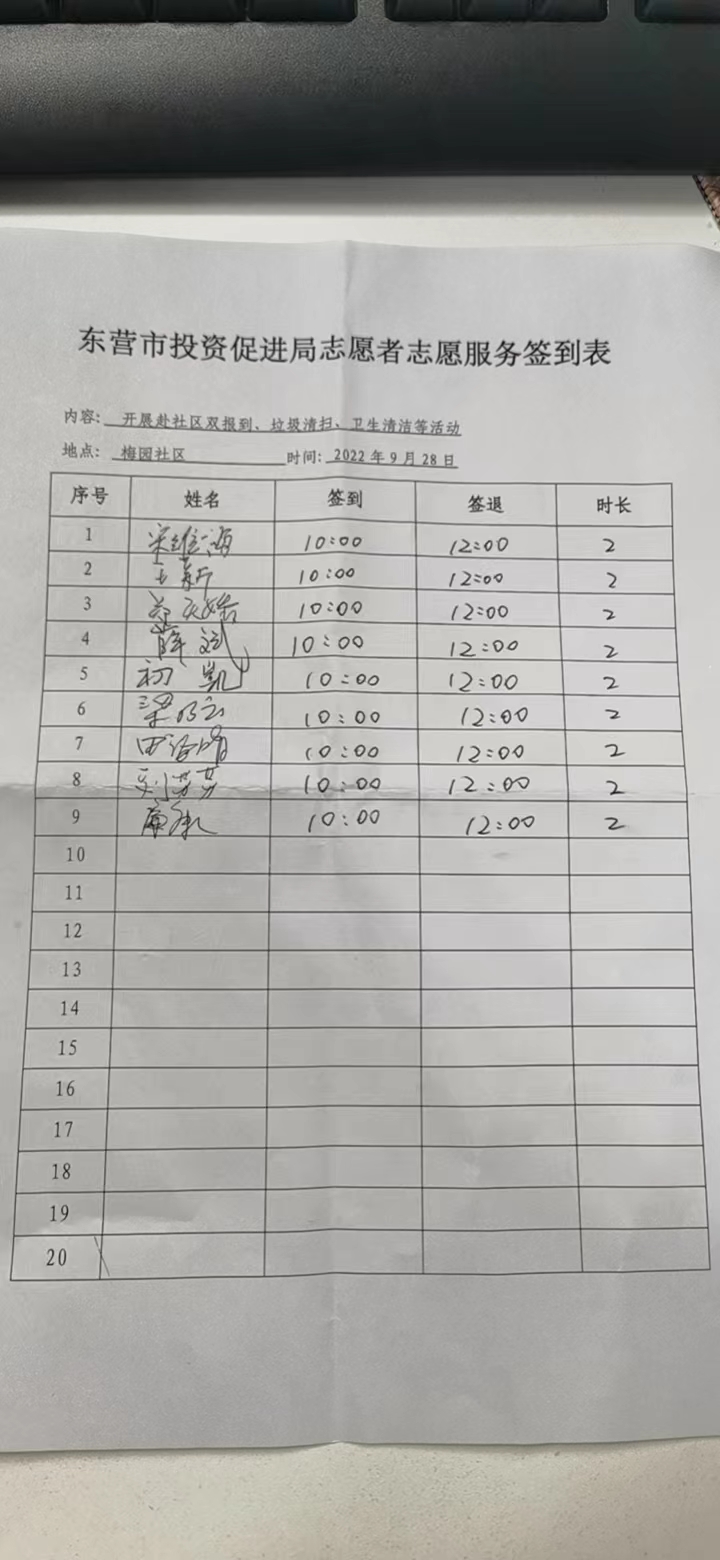 东营市投资促进局志愿者志愿服务签到表
内容: 开展赴社区双报到、垃圾清扫、卫生清洁等活动
地点: 梅园社区 时间: 2022 年 9 月 28 日
序号 姓名 签到 签退 时长
1 宋维海 10:00 12:00 2
2 王新 10:00 12:00 2
3 10:00 12:00 2
4 薛斌 10:00 12:00 2
5 初凯 10:00 12:00 2
6 梁 10:00 12:00 2
7 田 10:00 12:00 2
8 刘芳芳 10:00 12:00 2
9 10:00 12:00 2
10
11
12
13
14
15
16
17
18
19
20